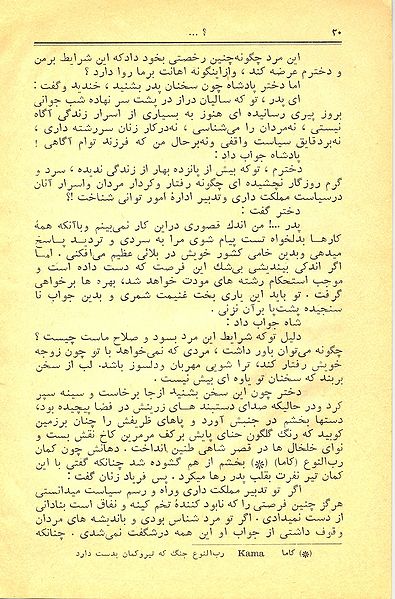 ۲۰
؟ ...
این مرد چگونه‌چنین رخصتی بخود دادکه این شرایط برمن
و دخترم عرضه کند ، وازاینگونه اهانت برما روا دارد ؟
اما دختر پادشاه چون سخنان پدر بشنید ، خندید وگفت :
ای پدر ، تو که سالیان دراز در پشت سر نهاده شب جوانی
بروز پیری رسانیده ای هنوز به بسیاری از اسرار زندگی آگاه
نیستی ، نه‌مردان را می‌شناسی ، نه‌درکار زنان سررشته داری ،
نه‌بردقایق سیاست واقفی ونه‌برحال من که فرزند توام آگاهی !
پادشاه جواب داد :
دخترم ، توکه بیش از پانزده بهار از زندگی ندیده ، سرد و
گرم روزگار نچشیده ای چگونه رفتار وکردار مردان واسرار آنان
درسیاست مملکت داری وتدبیر ادارهٔ امور توانی شناخت ؟!
دختر گفت :
پدر ...! من اندك قصوری دراین کار نمی‌بینم وباآنکه همهٔ
کارها بدلخواه تست پیام شوی مرا به سردی و تردید پاسخ
میدهی وبدین خامی کشور خویش در بلائی عظیم می‌افکنی . اما
اگر اندکی بیندیشی بی‌شك این فرصت که دست داده است و
موجب استحکام رشته های مودت خواهد شد، بهره ها برخواهی
گرفت . تو باید این یاری بخت غنیمت شمری و بدین جواب نا
سنجیده پشت‌پا برآن نزنی .
شاه جواب داد :
دلیل توکه شرایط این مرد بسود و صلاح ماست چیست ؟
چگونه می‌توان باور داشت ، مردی که نمی‌خواهد با تو چون زوجه
خویش رفتار کند، ترا شویی مهربان ودلسوز باشد. لب از سخن
بربند که سخنان تو یاوه ای بیش نیست .
دختر چون این سخن بشنید، ازجا برخاست و سینه سپر
کرد ودر حالیکه صدای دستبند های زرینش در فضا پیچیده بود،
دستها بخشم در جنبش آورد و پاهای ظریفش را چنان برزمین
کوبید که رنگ گلگون حنای پایش برکف مرمرین کاخ نقش بست و
نوای خلخال ها در قصر شاهی طنین انداخت . دهانش چون کمان
رب‌النوع (کاما) (*) بخشم از هم گشوده شد چنانکه گفتی با این
کمان تیر نفرت بقلب پدر رها میکرد . پس فریاد زنان گفت :
اگر تو تدبیر مملکت داری وراه و رسم سیاست میدانستی
هرگز چنین فرصتی را که نابود کنندهٔ تخم کینه و نفاق است بنادانی
از دست نمیدادی . اگر تو مرد شناس بودی و باندیشه های مردان
وقوف داشتی از جواب او این همه درشگفت نمی‌شدی . چنانکه
(*) کاما Kama رب‌النوع جنگ که تیروکمان بدست دارد